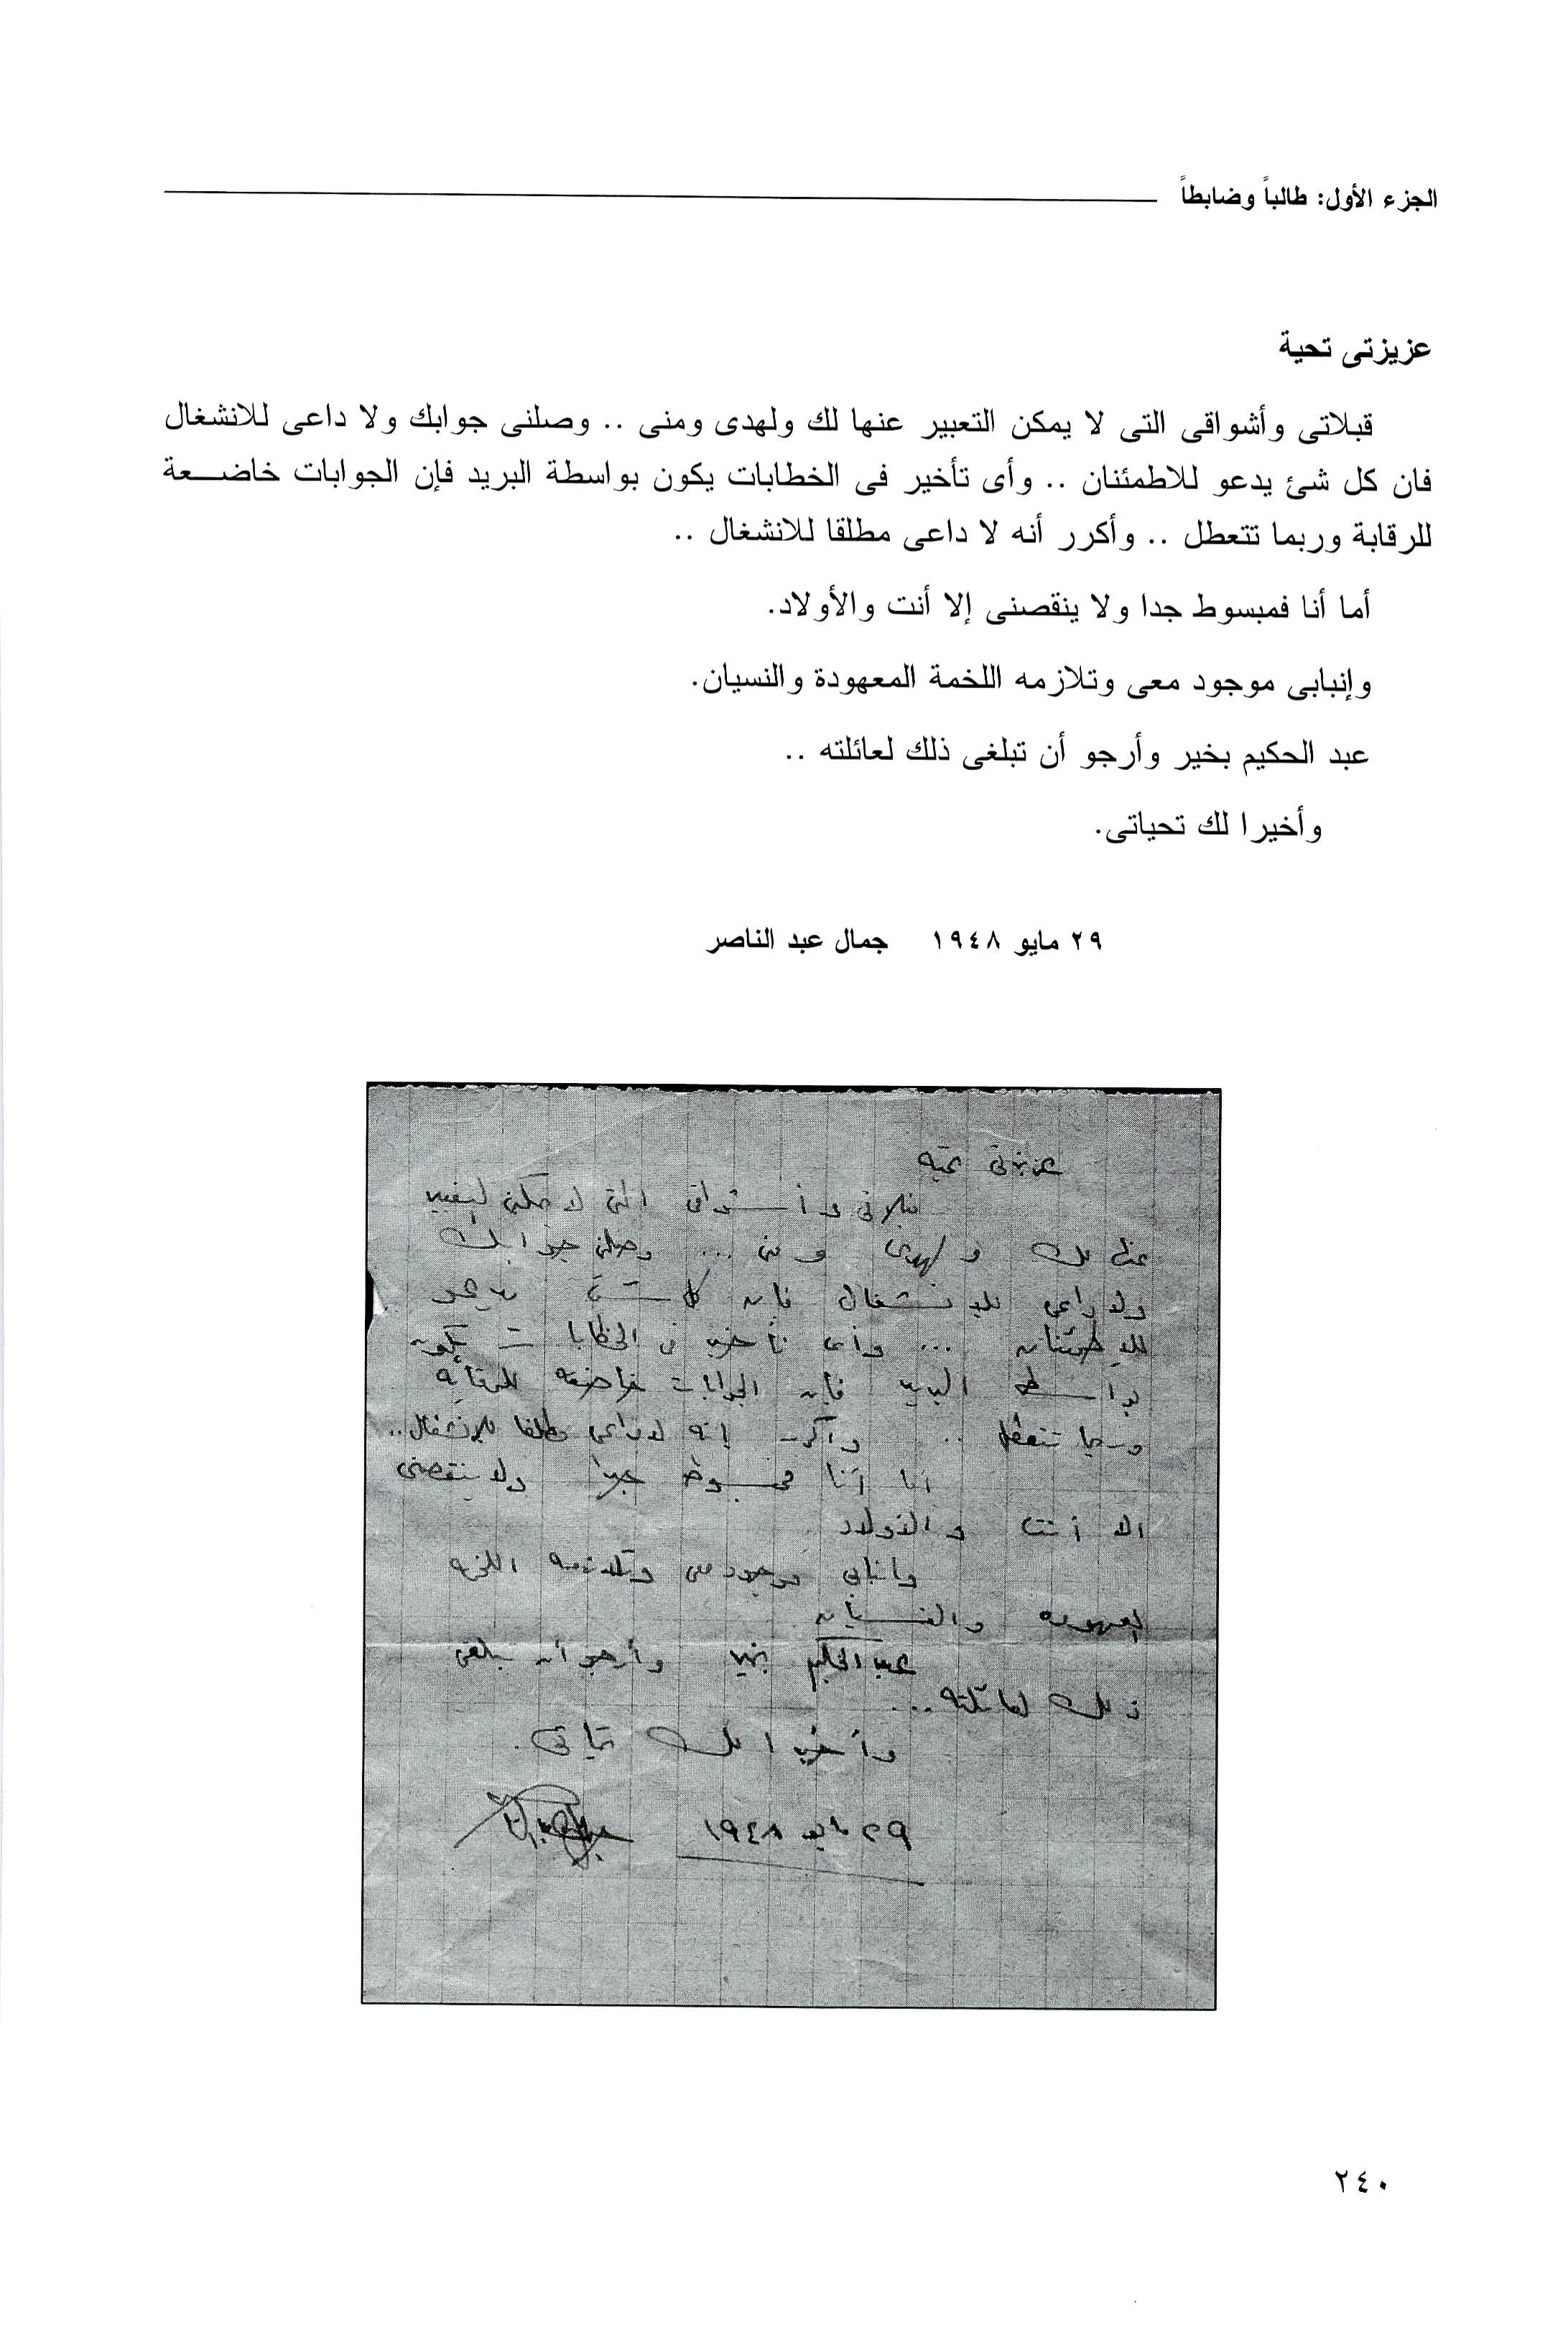 الجزء الأول: طالباً وضابطاً
عزيزتى تحية
قبلاتى وأشواقى التى لا يمكن التعبير عنها لك ولهدى ومنى .. وصلنى جوابك ولا داعى للانشغال
فان كل شئ يدعو للاطمئنان .. وأى تأخير فى الخطابات يكون بواسطة البريد فإن الجوابات خاضعة
للرقابة وربما تتعطل .. وأكرر أنه لا داعى مطلقا للانشغال ..
أما أنا فمبسوط جدا ولا ينقصنى إلا أنت والأولاد.
وإنبابى موجود معى وتلازمه اللخمة المعهودة والنسيان.
عبد الحكيم بخير وأرجو أن تبلغى ذلك لعائلته ..
وأخيرا لك تحياتى.
٢٩ مايو ١٩٤٨ جمال عبد الناصر
عزيزتى تحيه
قبلاتى وأشواقى التى لا يمكن التعبير
عنها لك ولهدى ومنى ... وصلنى جوابك
ولا داعى للانشغال فان كل شئ يدعو
للاطمئنان ... وأى تأخير فى الخطابات يكون
بواسطة البريد فان الجوابات خاضعه للرقابه
وربما تتعطل .. وأكرر إنه لا داعى مطلقا للانشغال..
أما أنا فمبسوط جدا ولا ينقصنى
الا أنت والأولاد
وانبابى موجود معى وتلازمه اللخمه
المعهوده والنسيان
عبد الحكيم بخير وأرجو أن تبلغى
ذلك لعائلته ...
وأخيرا لك تحياتى.
٢٩ مايو ١٩٤٨
٢٤٠